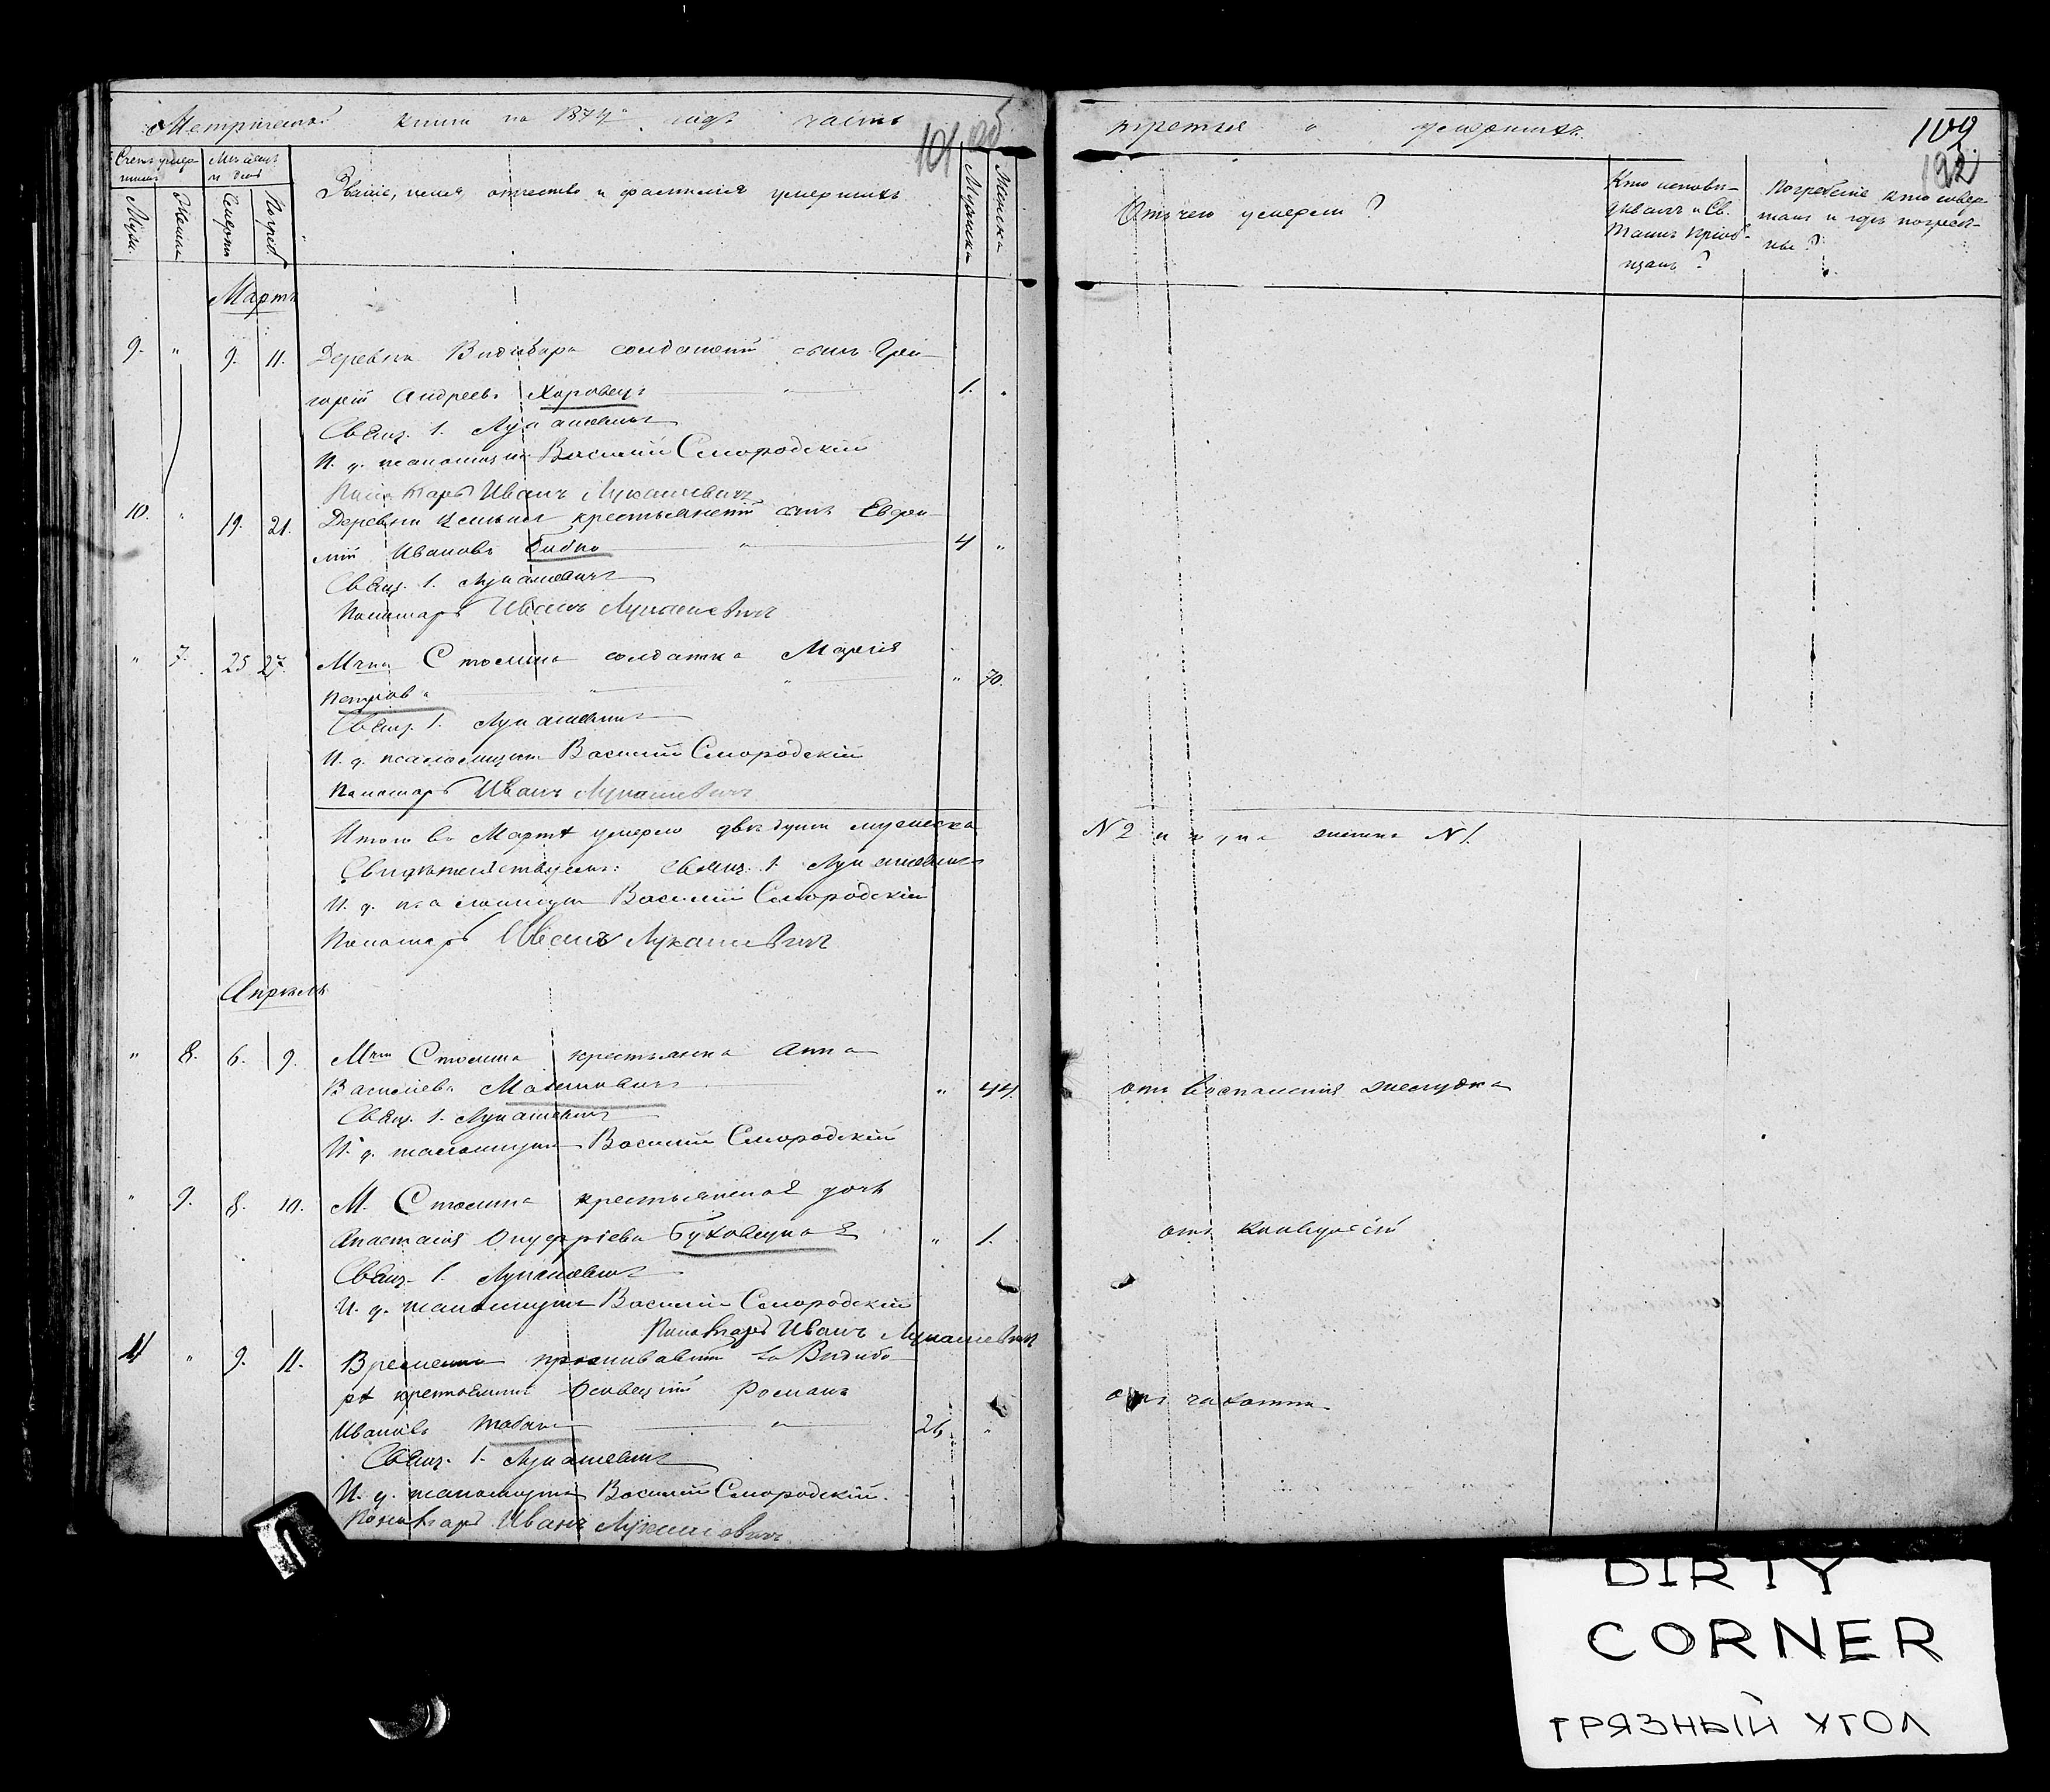 Метрической книги на 1874 годъ часть
третья о умершихъ.
109
192
Счетъ умер-
шихъ
Мѣсяцъ
и день
Мужи.
Женска
Смерти
Погреб.
Званіе, имя, отчество и фамилія умершихъ
Мужска
Женска
Отъ чего умерли?
Кто исповѣ-
дывалъ и Св.
Таинъ пріоб-
щалъ?
Погребеніе кто совер-
шалъ и гдѣ погребе-
ны?
Мартъ
9. " 9. 11. Деревни Видибора солдатскій сынъ Гри-
горій Андреевъ Хоровецъ 1. "
Свящ. І. Лукашевичъ
И. д. псаломщика Василій Смородскій
Пономарь Иванъ Лукашевичъ
10. " 19. 21. Деревни крестьянскій сынъ Евфи-
мій Ивановъ 4 "
Свящ. І. Лукашевичъ
Пономарь Иванъ Лукашевичъ
" 7. 25 27. Мѣст. Столина солдатка Марія
Петрова " 70.
Свящ. І. Лукашевичъ
И. д. псаломщика Василій Смородскій
Пономарь Иванъ Лукашевичъ
Итого въ Мартѣ умерло двѣ души мужеска
N 2 женска N 1.
Свидѣтельствуемъ: Свящ. І. Лукашевичъ
И. д. псаломщика Василій Смородскій
Пономарь Иванъ Лукашевичъ
Апрѣль
" 8. 6. 9. Мѣст. Столина крестьянка Анна
Василіева " 44. отъ воспаленія желудка
Свящ. І. Лукашевичъ
И. д. псаломщика Василій Смородскій
" 9. 8. 10. М. Столина крестьянская дочь
Анастасія Онуфріева " 1. отъ конвульсій
Свящ. І. Лукашевичъ
И. д. псаломщика Василій Смородскій
Пономарь Иванъ Лукашевичъ
11 " 9. 11. Временно проживавшій въ Видибо-
рѣ крестьянинъ Романъ отъ чахотки
Ивановъ 26 "
Свящ. І. Лукашевичъ
И. д. псаломщика Василій Смородскій.
Пономарь Иванъ Лукашевичъ
DIRTY
CORNER
ГРЯЗНЫЙ УГОЛ